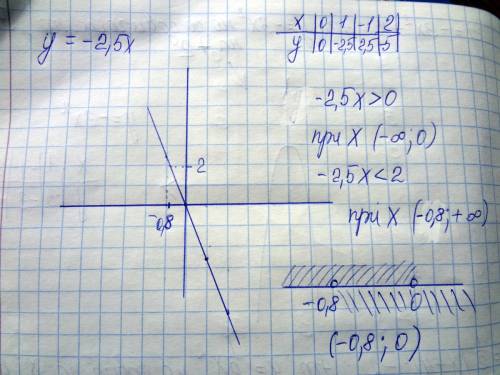 y = -2,5x
x | 0 | 1 | -1 | 2
y | 0 | -2,5 | 2,5 | -5
-2,5x>0
при x (-∞; 0)
-2,5x<2
при x (-0,8; +∞)
2
-0,8
-0,8 0
(-0,8; 0)